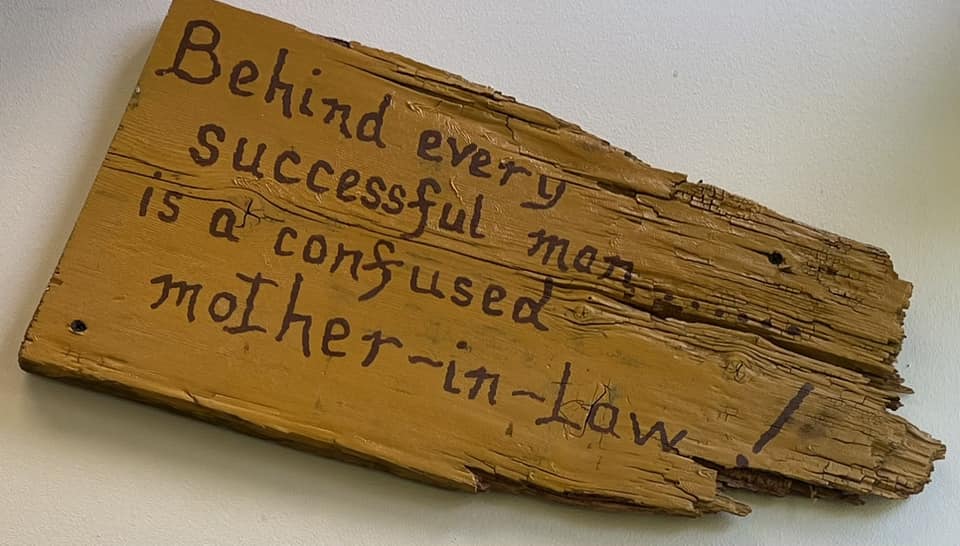 Behind every
successful man......
is a confused
mother-in-law!